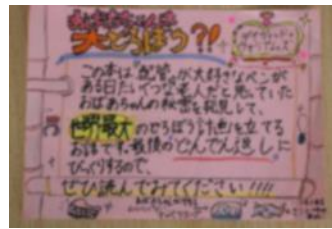 大どろぼう?!
この本は、配管が大好きなベンが
ある日たいくつな老人だと思っていた
おばあちゃんの秘密を発見して、
世界最大のどろぼう計画を立てる
お話です。最後のどんでん返しに
びっくりするので、
ぜひ読んでみてください!!!!